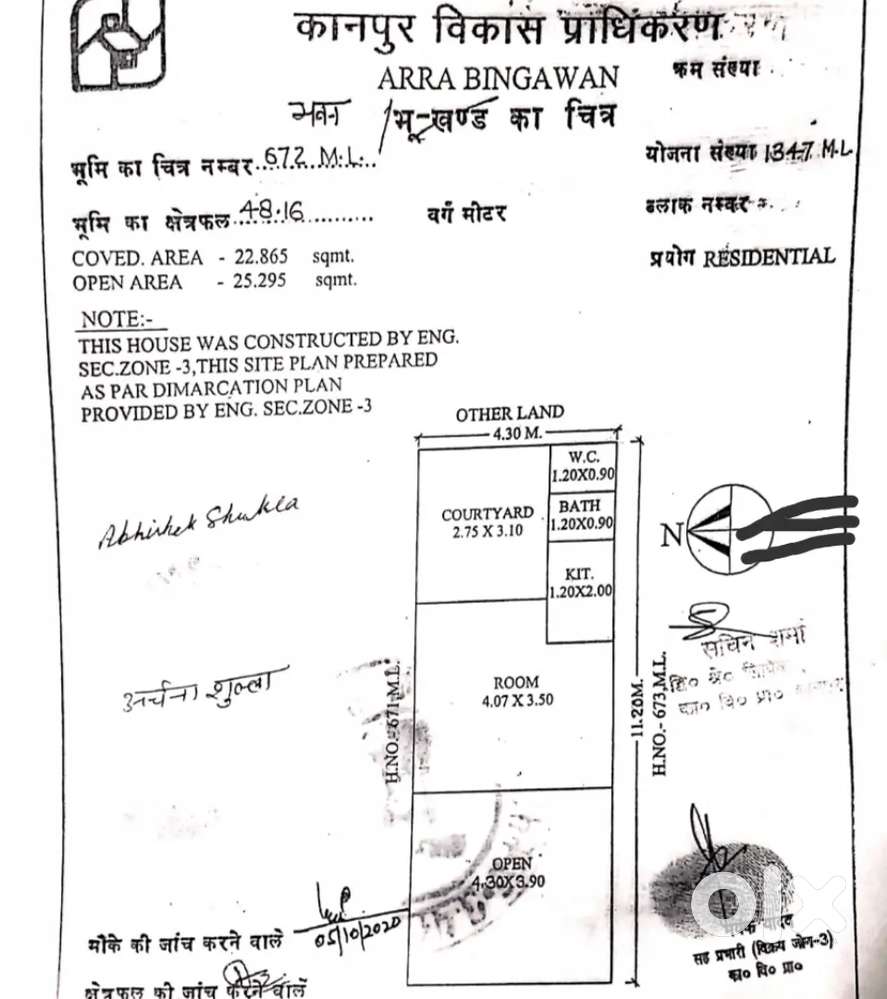 कानपुर विकास प्राधिकरण
ARRA BINGAWAN
क्रम संख्या
भवन / भू-खण्ड का चित्र
भूमि का चित्र नम्बर 672 M.L.
योजना संख्या 1347 M.L
भूमि का क्षेत्रफल 48.16 वर्ग मीटर
ब्लाक नम्बर
COVED. AREA - 22.865 sqmt.
प्रयोग RESIDENTIAL
OPEN AREA - 25.295 sqmt.
NOTE:-
THIS HOUSE WAS CONSTRUCTED BY ENG.
SEC.ZONE -3,THIS SITE PLAN PREPARED
AS PAR DIMARCATION PLAN
PROVIDED BY ENG. SEC.ZONE -3
OTHER LAND
4.30 M.
W.C.
1.20X0.90
COURTYARD
2.75 X 3.10
BATH
1.20X0.90
KIT.
1.20X2.00
N
Abhishek Shukla
सचिन शर्मा
अर्चना शुक्ला
ROOM
4.07 X 3.50
H.NO.- 671-M.L.
11.20M.
H.NO.- 673,M.L.
का० वि० प्रा०
OPEN
4.30X3.90
05/10/2020
मौके की जांच करने वाले
सह प्रभारी (विक्रय जोन-3)
का० वि० प्रा०
क्षेत्रफल की जांच करने वालें
olx